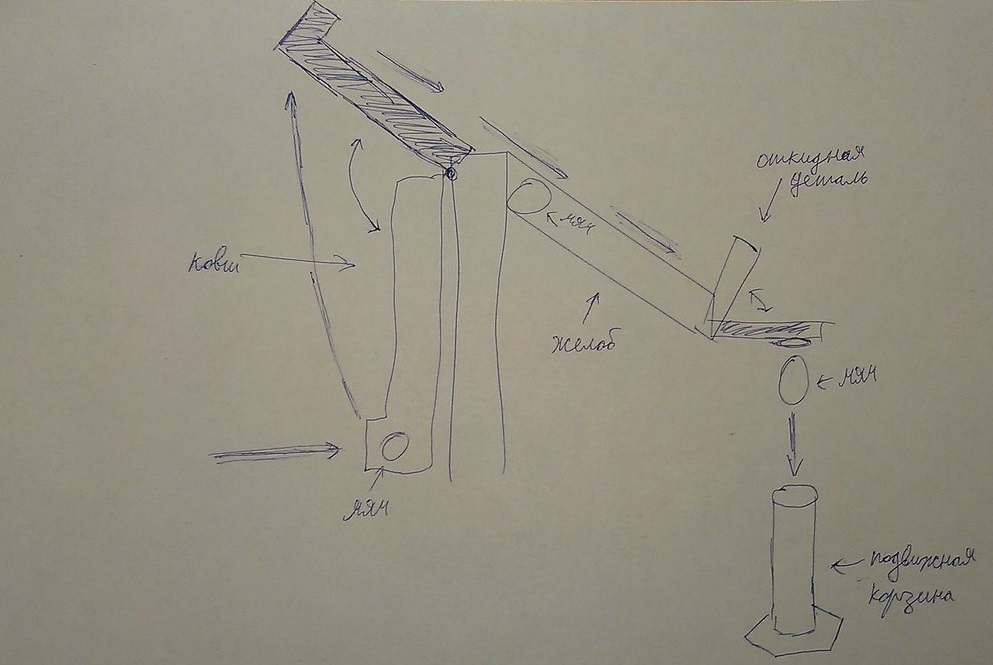 откидная
деталь
мяч
ковш
желоб
мяч
мяч
подвижная
корзина